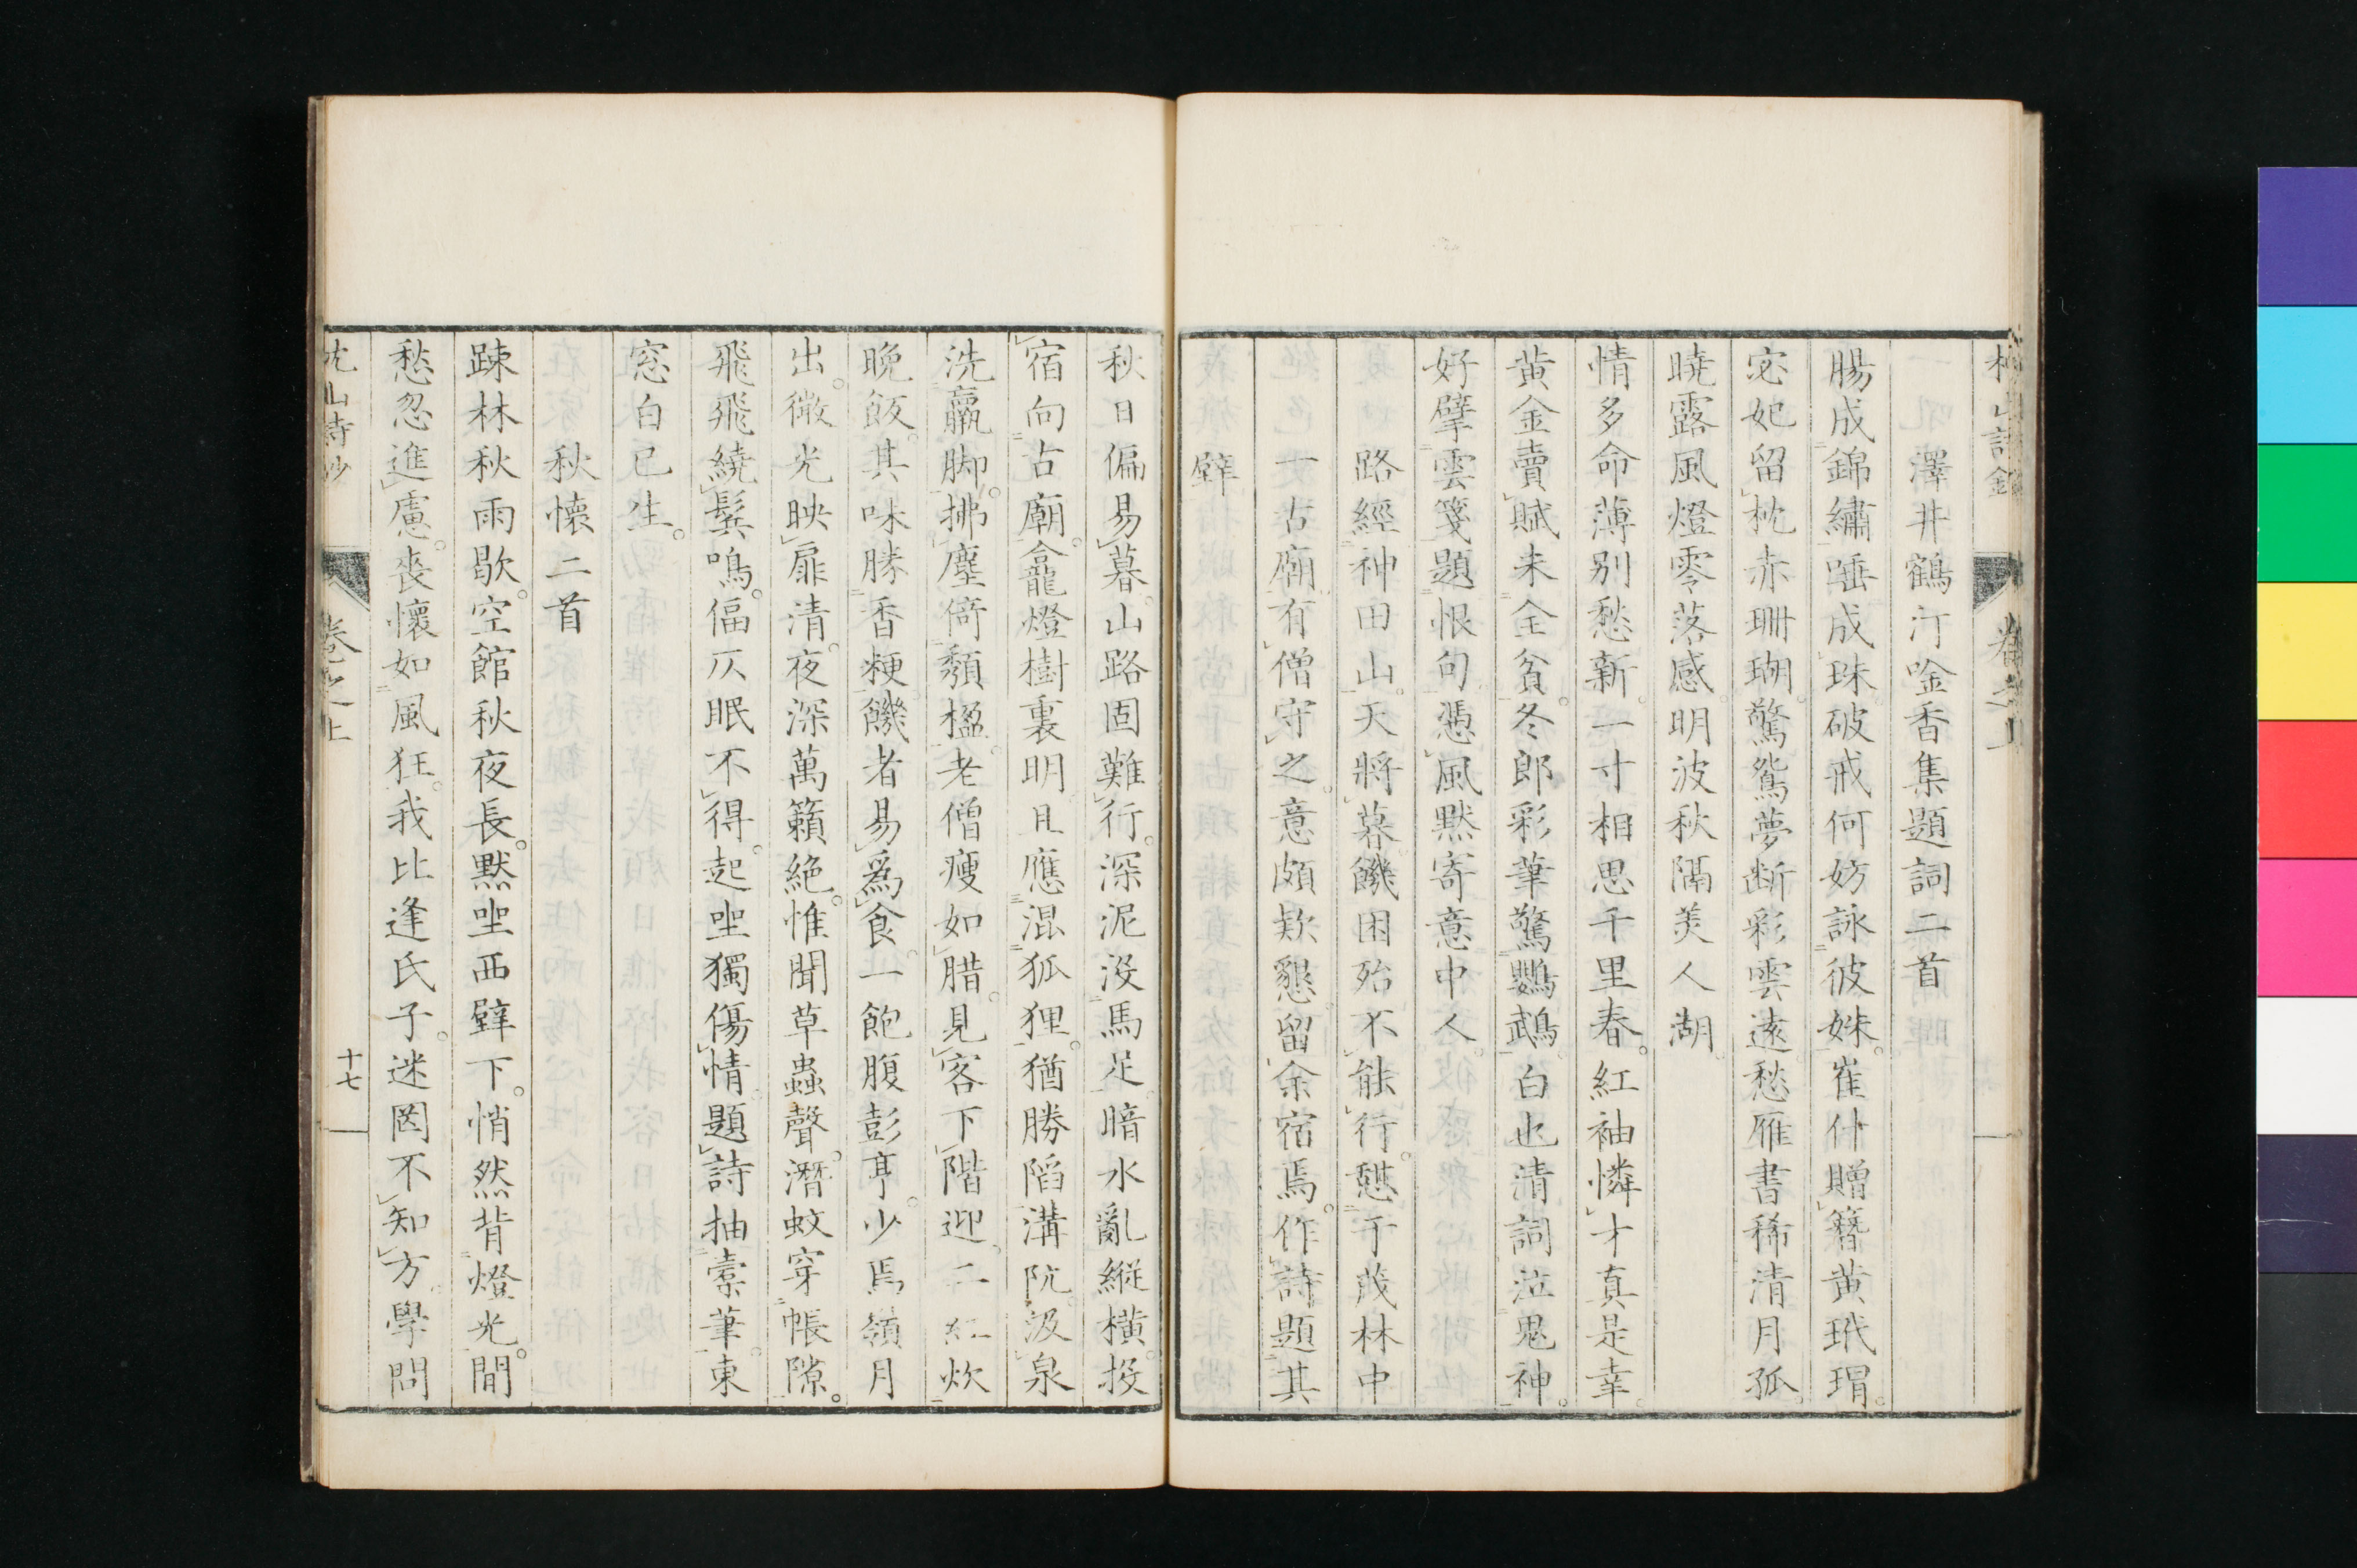 澤井鶴汀唫香集題詞二首
腸成錦繡唾成珠破戒何妨詠彼姝。崔什贈簪黄玳瑁。
宓妃留枕赤珊瑚。驚鴛夢断彩雲遠愁雁書稀清月孤。
曉露風燈零落感。明波秋隔美人湖。
情多命薄別愁新。一寸相思千里春。紅袖憐才真是幸。
黄金賣賦未全貧。冬郎彩筆驚鸚鵡。白也清詞泣鬼神。
好擘雲箋題恨句。憑風黙寄意中人。
路經神田山。天將暮。饑困殆不能行。憇于茂林中
一古廟有僧守之。意頗欵懇。留余宿焉。作詩題其
壁
秋日偏易暮。山路固難行。深泥沒馬足。暗水亂縱橫。投
宿向古廟。龕燈樹裏明。且應混狐狸。猶勝陷溝阬。汲泉
洗羸脚。拂塵倚頽楹。老僧瘦如腊。見客下階迎。二紅炊
晩飯。其味勝香粳。饑者易爲食。一飽腹彭亨。少焉嶺月
出。微光映扉清。夜深萬籟絶。惟聞草蟲聲。潛蚊穿帳隙。
飛飛繞鬓鳴。偪仄眠不得。起坐獨傷情。題詩抽橐筆。東
窓白已生。
秋懷二首
踈林秋雨歇。空館秋夜長。黙坐西壁下。悄然背燈光。閒
愁忽進慮。喪懷如風狂。我比逢氏子。迷罔不知方。學問
枕山詩鈔
卷之上
十七